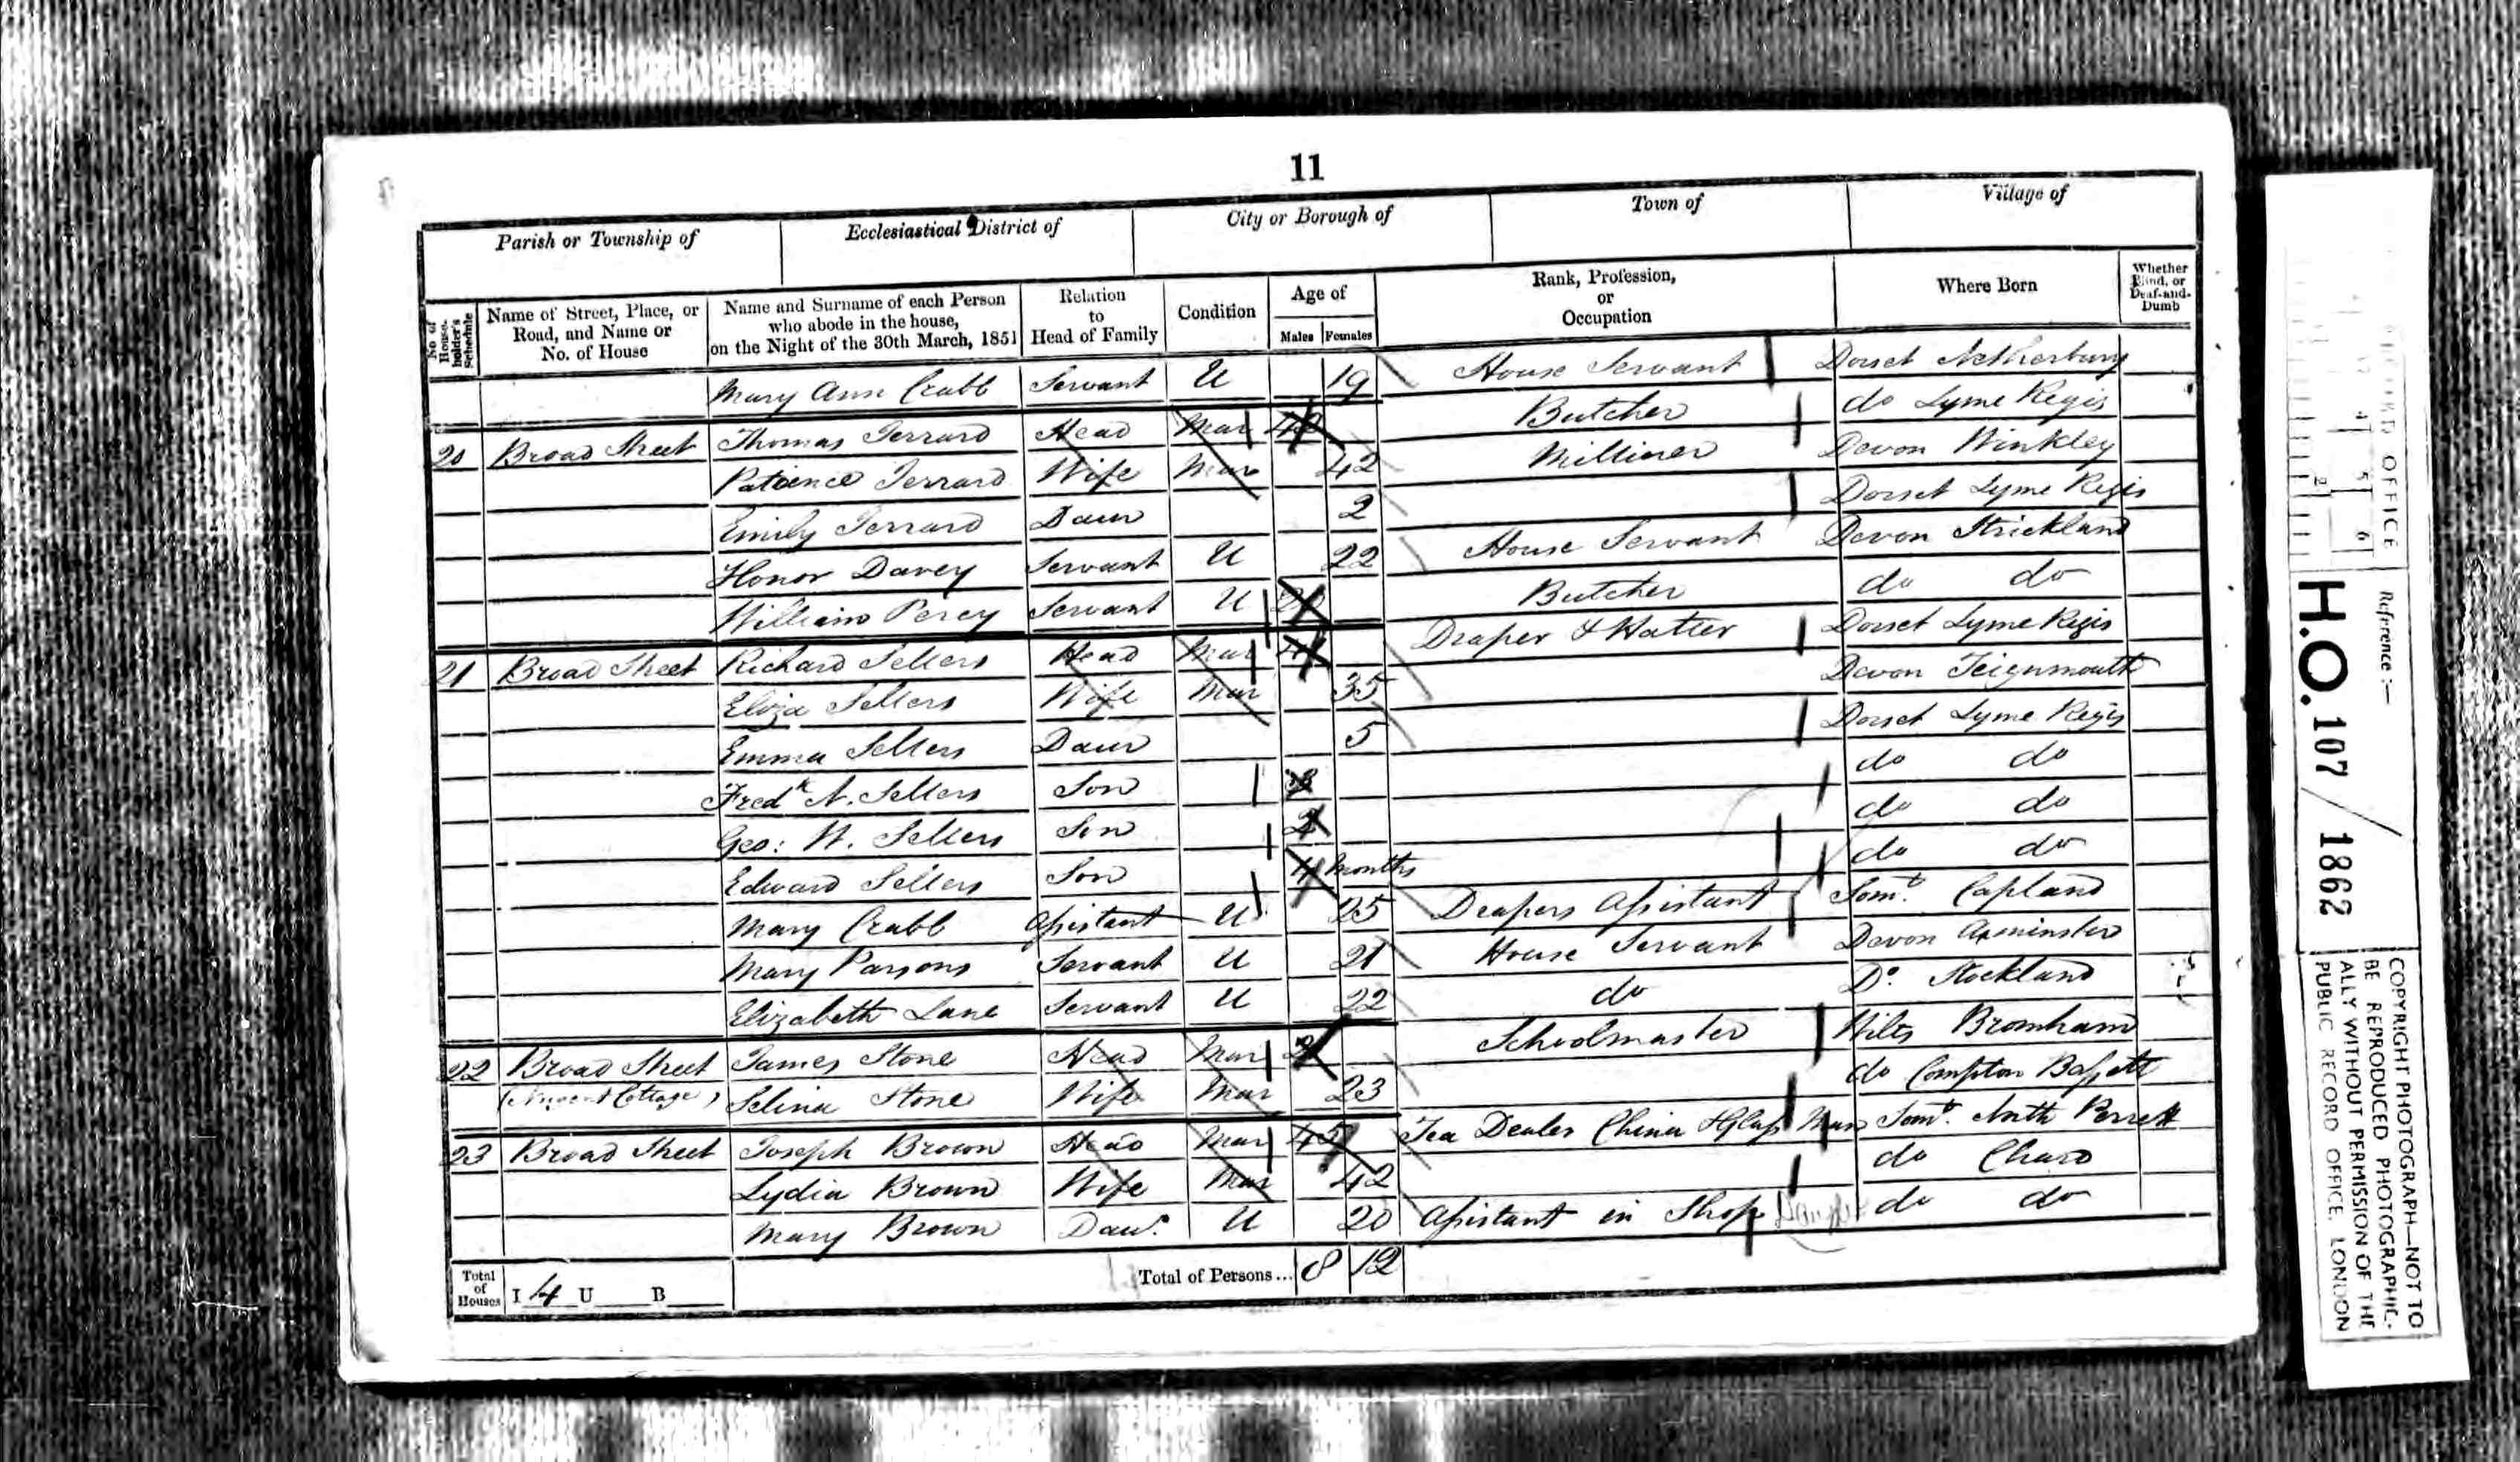 11
Parish or Township of Ecclesiastical District of City or Borough of Town of Village of
No. of House-holder's Schedule Name of Street, Place, or Road, and Name or No. of House Name and Surname of each Person who abode in the house, on the Night of the 30th March, 1851 Relation to Head of Family Condition Age of Males Females Rank, Profession, or Occupation Where Born Whether Blind, or Deaf-and-Dumb
Mary Ann Crabb Servant U 19 House Servant Dorset Netherbury
20 Broad Street Thomas Terrard Head Mar Butcher do Lyme Regis
Patience Terrard Wife Mar 42 Milliner Devon Winkley
Emily Terrard Daur 2 Dorset Lyme Regis
Honor Davey Servant U 22 House Servant Devon Strickland
William Percy Servant U Butcher do do
21 Broad Street Richard Sellers Head Mar Draper & Hatter Dorset Lyme Regis
Eliza Sellers Wife Mar 35 Devon Teignmouth
Emma Sellers Daur 5 Dorset Lyme Regis
Fredk N. Sellers Son 3 do do
Geo: W. Sellers Son 2 do do
Edward Sellers Son 4 Months do do
Mary Crabb Assistant U 25 Drapers Assistant Somt. Capland
Mary Parsons Servant U 21 House Servant Devon Axminster
Elizabeth Lane Servant U 22 do Do. Stockland
22 Broad Street James Stone Head Mar Schoolmaster Wilts Bromham
Cottage) Selina Stone Wife Mar 23 do Compton Bassett
23 Broad Street Joseph Brown Head Mar 45 Tea Dealer China & Glass Man Somt. North Perrett
Lydia Brown Wife Mar 42 do Chard
Mary Brown Daur. U 20 Assistant in Shop do do
Total of Houses I 4 U B Total of Persons... 8 12
OFFICE
Reference :—
H.O. 107 / 1862
COPYRIGHT PHOTOGRAPH—NOT TO
BE REPRODUCED PHOTOGRAPHIC-
ALLY WITHOUT PERMISSION OF THE
PUBLIC RECORD OFFICE, LONDON